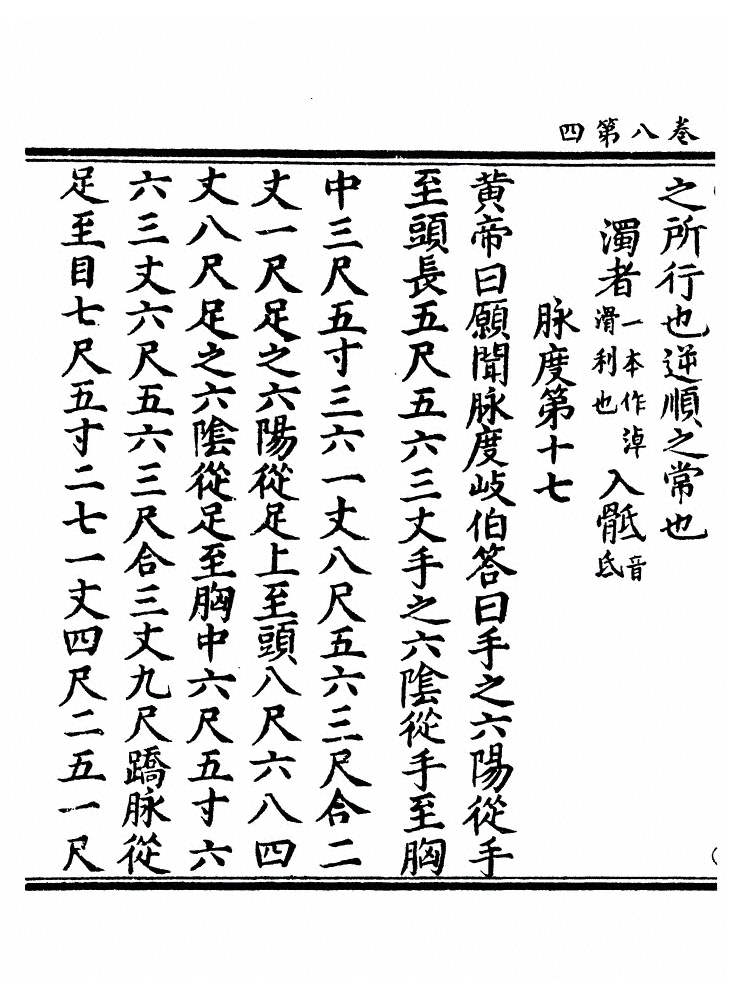 卷八第四
之所行也逆順之常也
濁者一本作淖滑利也入骶音氐
脉度第十七
黃帝曰願聞脉度岐伯答曰手之六陽從手
至頭長五尺五六三丈手之六陰從手至胸
中三尺五寸三六一丈八尺五六三尺合二
丈一尺足之六陽從足上至頭八尺六八四
丈八尺足之六陰從足至胸中六尺五寸六
六三丈六尺五六三尺合三丈九尺蹻脉從
足至目七尺五寸二七一丈四尺二五一尺